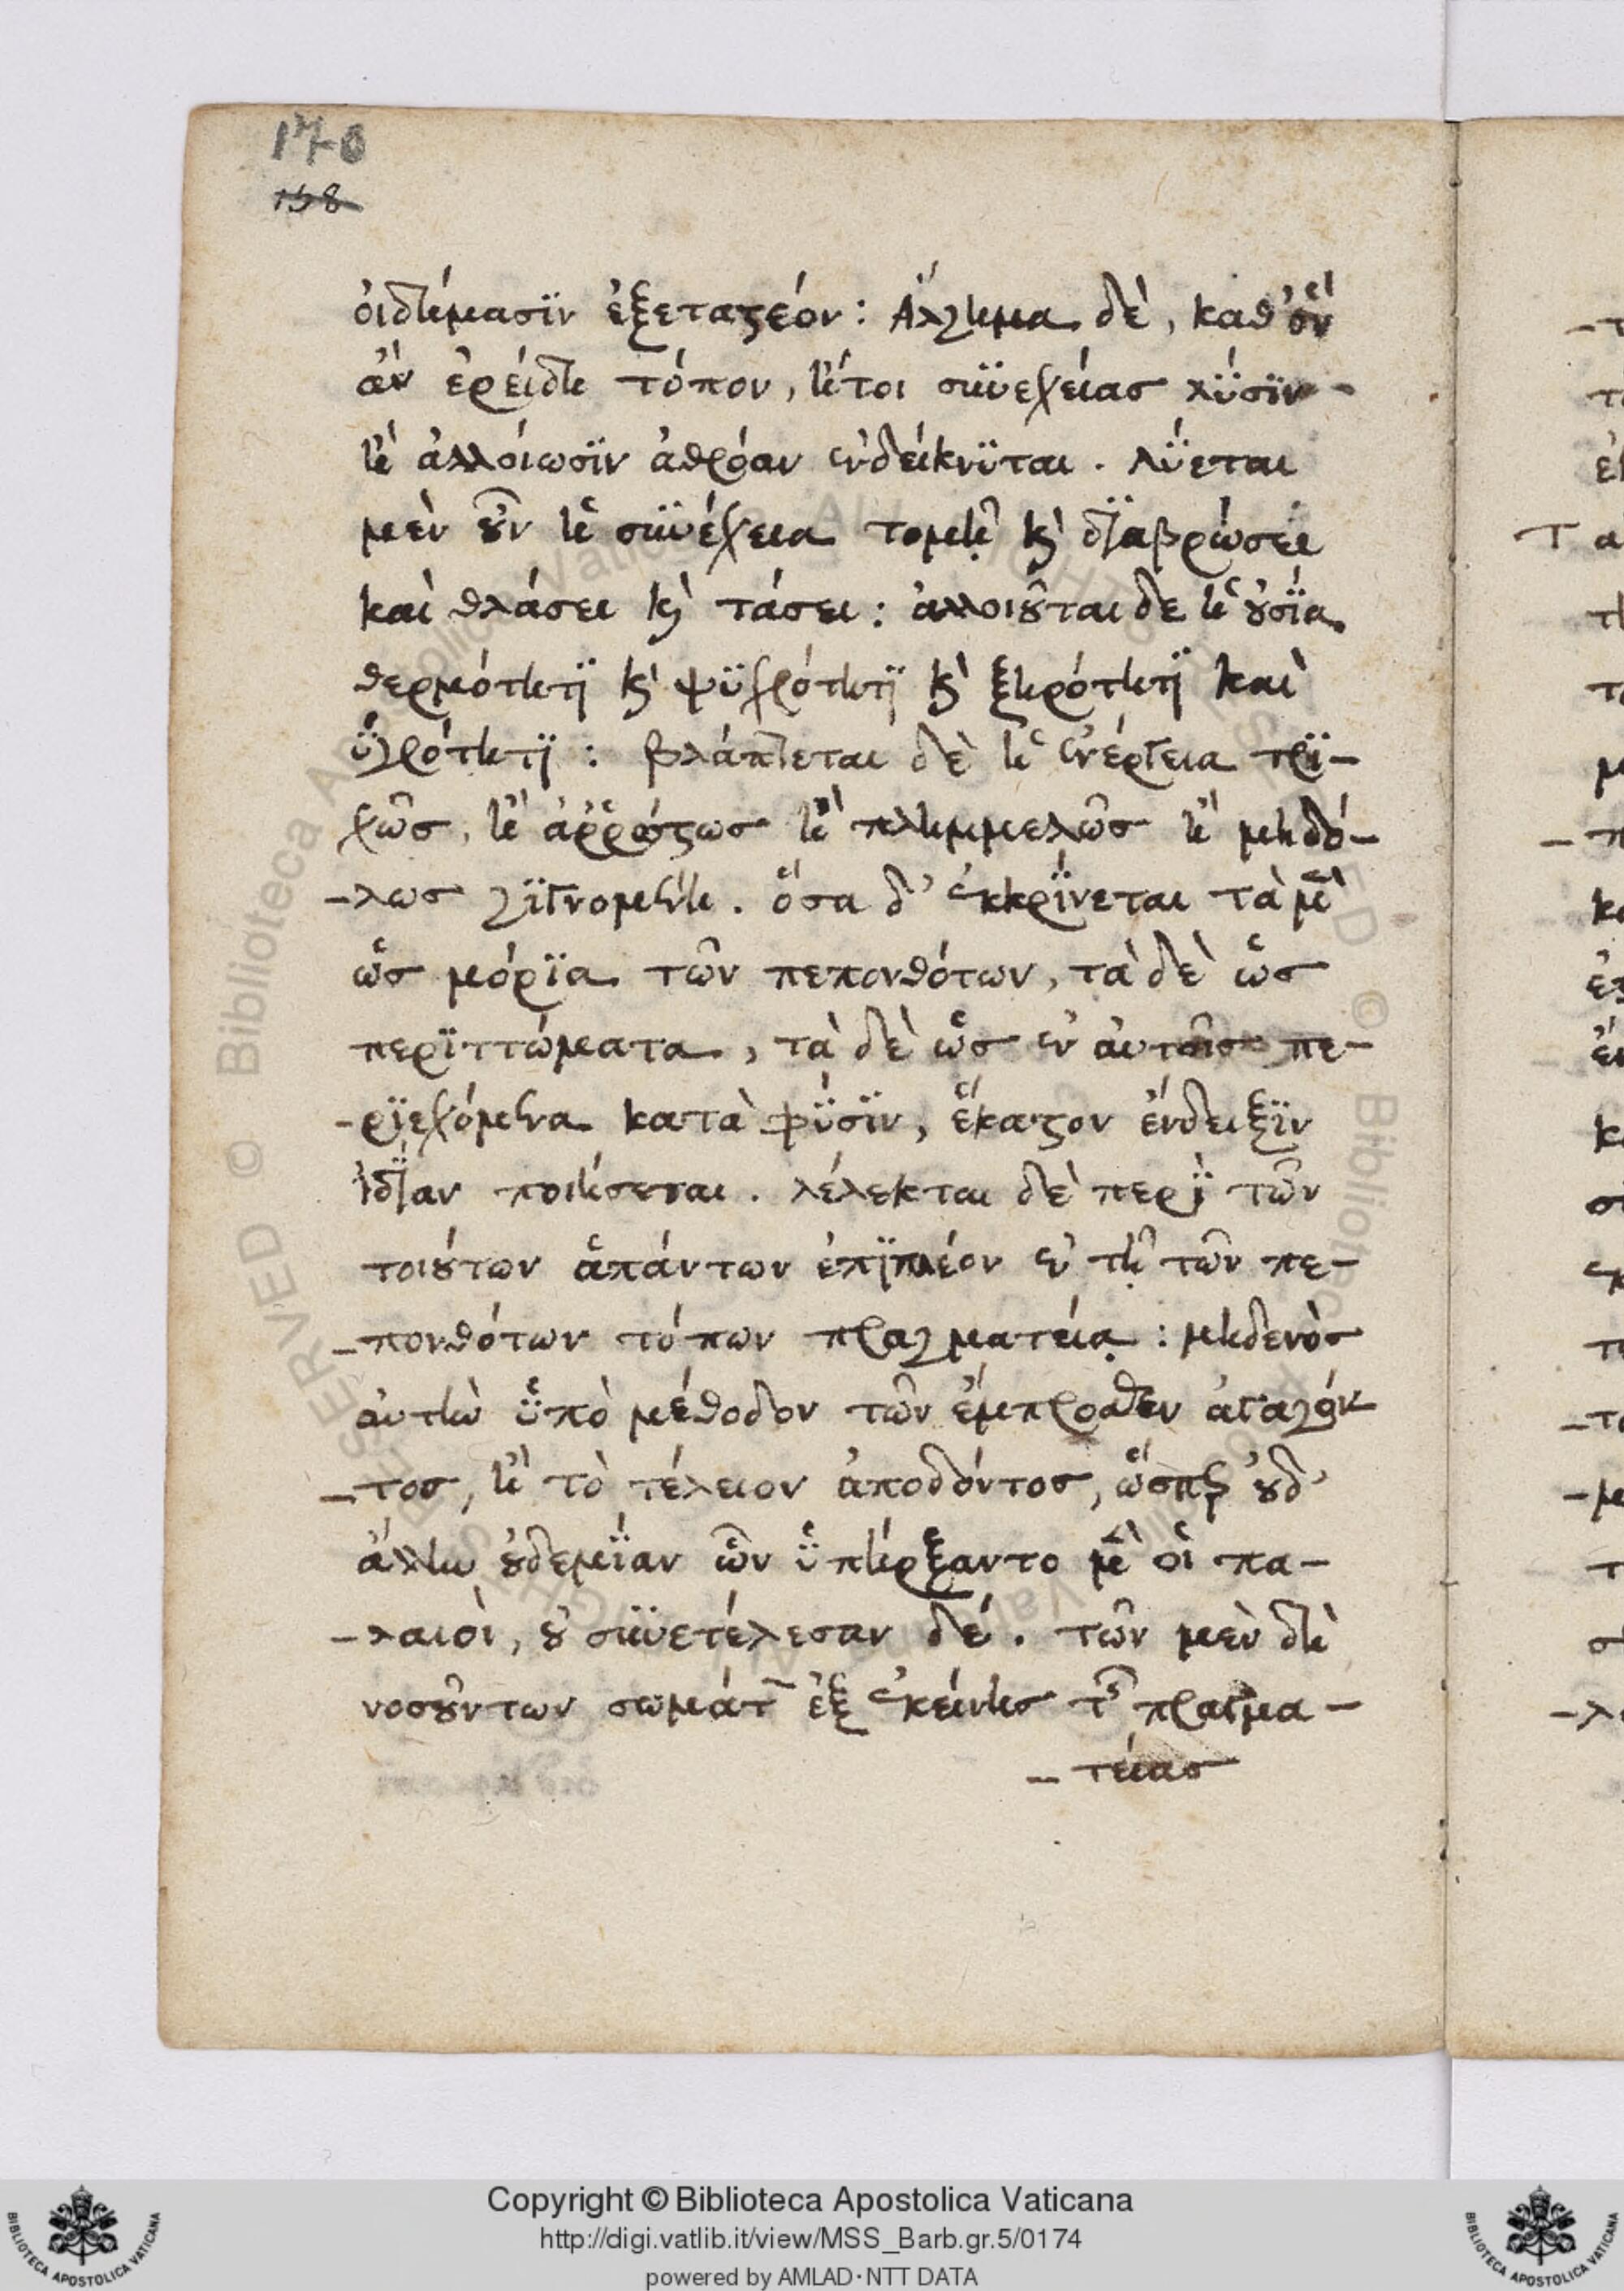 170
158
οἰδήμασϊν ἐξεταστέον: Ἄλγημα δὲ, καθ' ὃν
ἂν ἐρείδη τόπον, ἤτοι συνεχείας λύσϊν
ἢ ἀλλοίωσϊν ἀθρόαν ἐνδείκνϋται. λύεται
μὲν οὖν ἡ συνέχεια τομῇ καὶ δϊαβρώσει
καὶ θλάσει καὶ τάσει: ἀλλοιοῦται δε ἡ οὐσΐα
θερμότητϊ καὶ ψϋχρότητϊ καὶ ξηρότητϊ καὶ
ὑγρότητϊ: βλάπτεται δὲ ἡ ἐνέργεια τρϊ-
χῶς, ἢ ἀῤῥώστως ἢ πλημμελῶς ἢ μηδό-
-λως γϊγνομένη. ὅσα δ' ἐκκρΐνεται τὰ μὲν
ὡς μόρϊα τῶν πεπονθότων, τὰ δὲ ὡς
περϊττώματα, τὰ δὲ ὡς ἐν αὐτοῖς πε-
-ρϊεχόμενα κατὰ φύσϊν, ἕκαστον ἔνδειξϊν
ἰδΐαν ποιήσεται. λέλεκται δὲ περῒ τῶν
τοιούτων ἁπάντων ἐπῒπλέον ἐν τῇ τῶν πε-
-πονθότων τόπων πραγματείᾳ: μηδενὸς
αὐτὴν ὑπὸ μέθοδον τῶν ἔμπροσθεν ἀγαγόν
-τος, ἢ τὸ τέλειον ἀποδόντος, ὥσπερ οὐδ'
ἄλλην οὐδεμΐαν ὧν ὑπήρξαντο μὲν οἱ πα-
-λαιοὶ, οὐ συνετέλεσαν δέ. τῶν μὲν δὴ
νοσούντων σωμάτων ἐξ ἐκείνης τῆς πραγμα-
-τείας
Copyright © Biblioteca Apostolica Vaticana
http://digi.vatlib.it/view/MSS_Barb.gr.5/0174
powered by AMLAD·NTT DATA